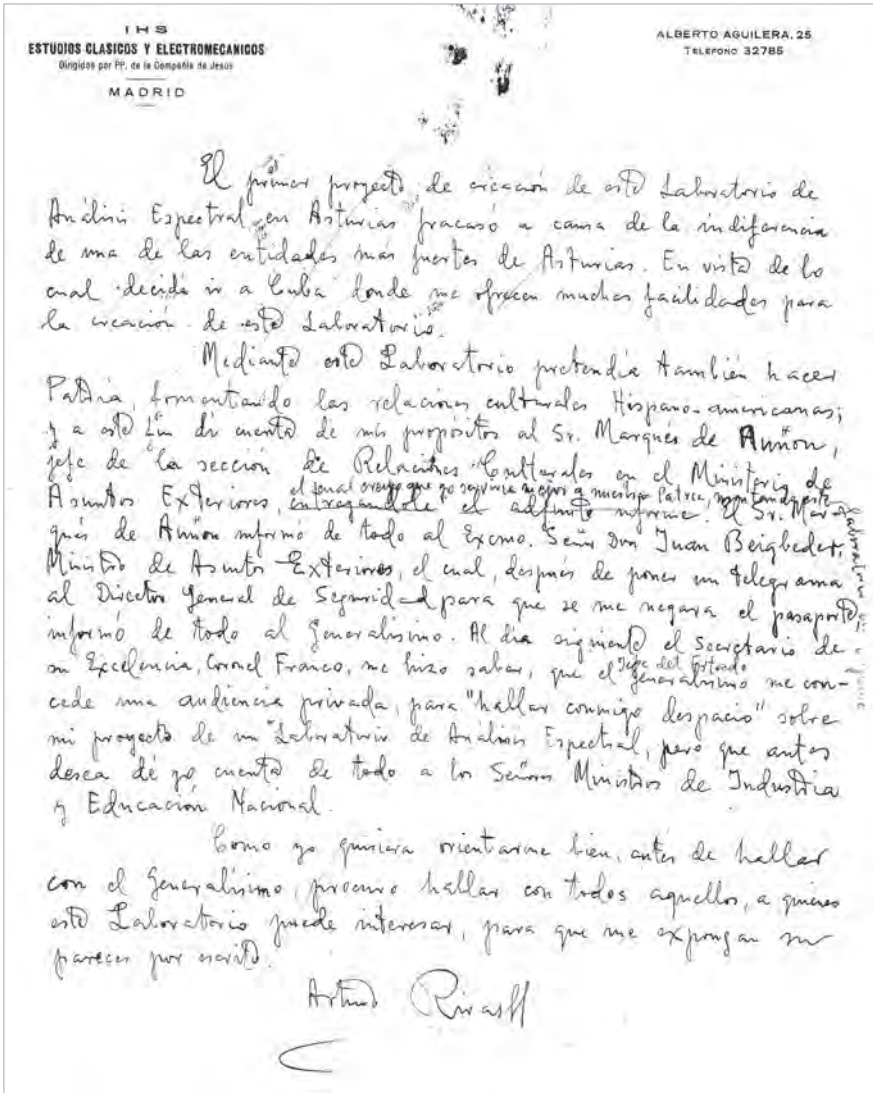 IHS
ESTUDIOS CLASICOS Y ELECTROMECANICOS
Dirigidos por PP. de la Compañía de Jesús
MADRID
ALBERTO AGUILERA, 25
TELEFONO 32785
El primer proyecto de creación de este Laboratorio de
Análisis Espectral en Asturias fracasó a causa de la indiferencia
de una de las entidades más fuertes de Asturias. En vista de lo
cual decidí ir a Cuba donde me ofrecen muchas facilidades para
la creación de este Laboratorio.
Mediante este Laboratorio pretendía también hacer
Patria, fomentando las relaciones culturales Hispano-americanas;
y a este fin di cuenta de mis propósitos al Sr. Marqués de Auñon,
jefe de la sección de Relaciones Culturales en el Ministerio de
el cual creyo que yo serviría mejor a nuestra Patria, montando este
Laboratorio
Asuntos Exteriores, entregandole el adjunto informe. El Sr. Mar-
qués de Auñon informó de todo al Excmo. Señor Don Juan Beigbeder,
Ministro de Asuntos Exteriores, el cual, después de poner un telegrama
al Director General de Seguridad para que se me negara el pasaporte,
informó de todo al Generalísimo. Al día siguiente el Secretario de
su Excelencia, Coronel Franco, me hizo saber, que el Generalísimo me con-
Jefe del Estado
cede una audiencia privada, para "hallar conmigo despacio" sobre
mi proyecto de un "Laboratorio de Análisis Espectral, pero que antes
desea dé yo cuenta de todo a los Señores Ministros de Industria
y Educación Nacional.
Como yo quisiera orientarme bien, antes de hallar
con el Generalísimo, procuro hallar con todos aquellos, a quienes
este Laboratorio puede interesar, para que me expongan su
parecer por escrito.
Arturo